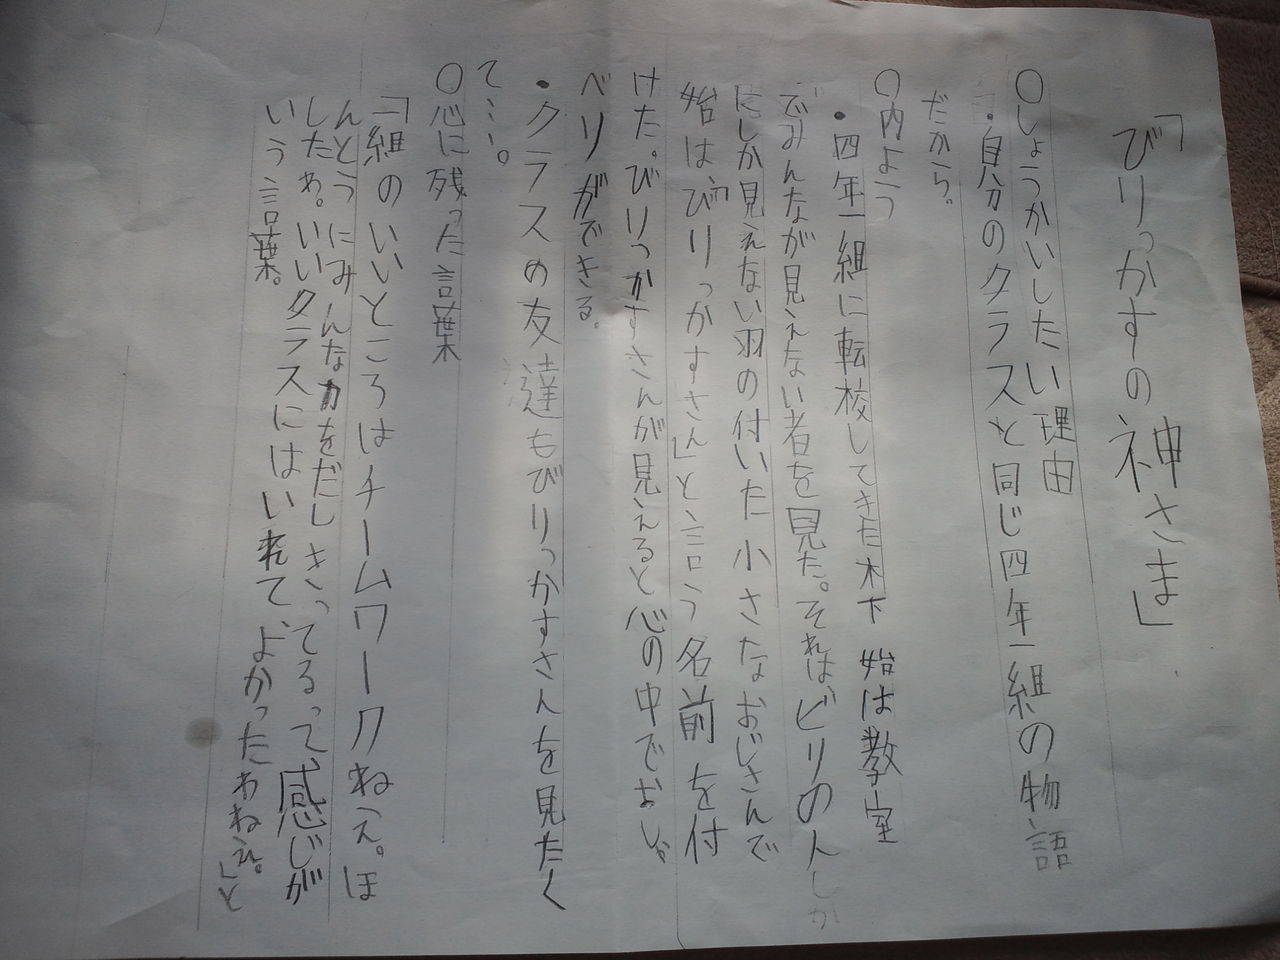 「びりっかすの神さま」
○しょうかいしたい理由
・自分のクラスと同じ四年一組の物語
だから。
○内よう
・四年一組に転校してきた木下 始は教室
でみんなが見えない者を見た。それは、ビリの人しか
にしか見えない羽の付いた小さなおじさんで
始は、「びりっかすさん」と言う名前を付
けた。びりっかすさんが見えると心の中でおしゃ
べリができる。
・クラスの友達もびりっかすさんを見たく
て…。
○心に残った言葉
「一組のいいところはチームワークねえ。ほ
んとうにみんな力をだしきってるって、感じが
したわ。いいクラスにはいれて、よかったわねえ。」と
いう言葉。